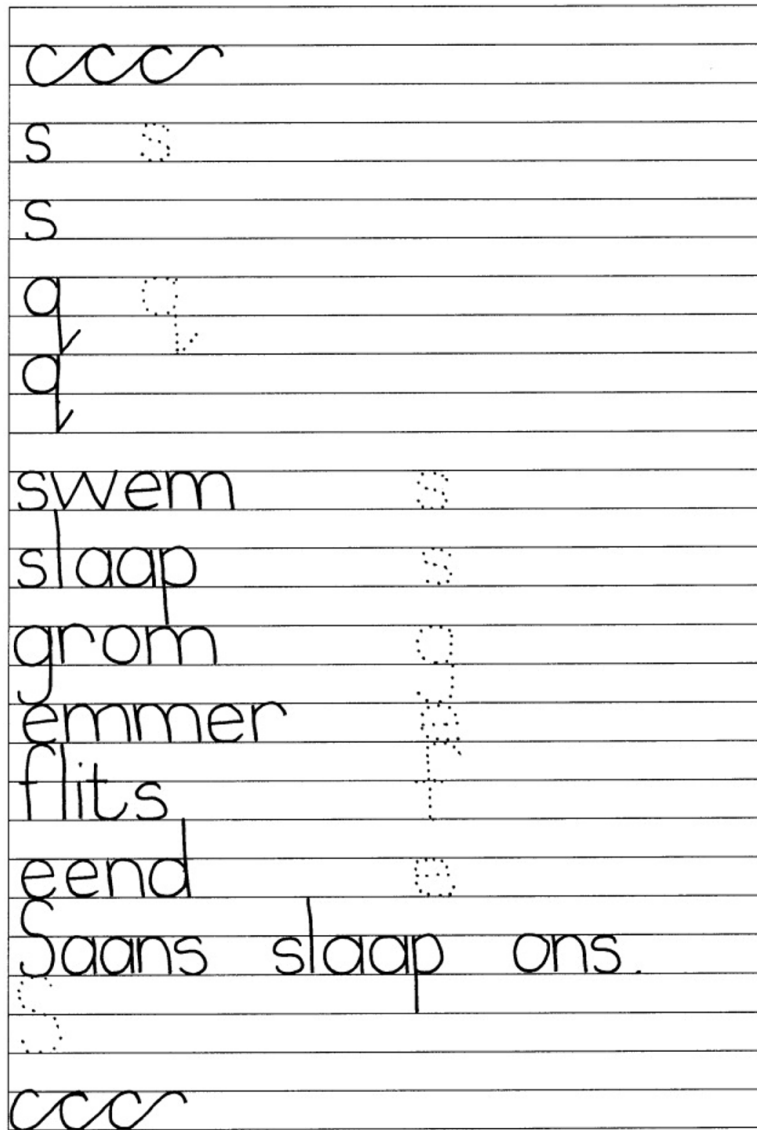 ccc
s s
s
q q
q
swem s
slaap s
grom g
emmer e
flits f
eend e
Saans slaap ons.
S
ccc